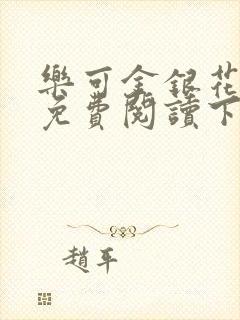 樂可金銀花
免費閱讀下
趙平